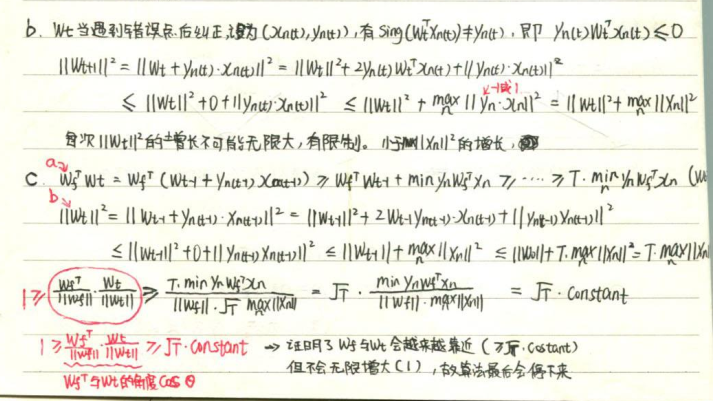 b. Wt当遇到错误点后纠正,设为(Xn(t), yn(t)),有 Sing(WtᵀXn(t))≠yn(t),即 yn(t)WtᵀXn(t)≤0
||Wt+1||² = ||Wt + yn(t)·Xn(t)||² = ||Wt||² + 2yn(t)WtᵀXn(t) + ||yn(t)·Xn(t)||²
-1或1
≤ ||Wt||² + 0 + ||yn(t)·Xn(t)||² ≤ ||Wt||² + max n ||yn·Xn||² = ||Wt||² + max n ||Xn||²
每次||Wt||²的增长不可能无限大,有限制。小于||Xn||²的增长,
a
C. WfᵀWt = Wfᵀ(Wt-1 + yn(t-1)Xn(t-1)) ≥ WfᵀWt-1 + min ynWfᵀXn ≥ ····· ≥ T·min n ynWfᵀXn (W0
b
||Wt||² = ||Wt-1 + yn(t-1)·Xn(t-1)||² = ||Wt-1||² + 2Wt-1yn(t-1)·Xn(t-1) + ||yn(t-1)Xn(t-1)||²
≤ ||Wt-1||² + 0 + ||yn(t-1)Xn(t-1)||² ≤ ||Wt-1|| + max n ||Xn||² ≤ ||W0|| + T·max n ||Xn||² = T·max n ||Xn
1 ≥ Wfᵀ/||Wf|| · Wt/||Wt|| ≥ T·min ynWfᵀXn / ||Wf||·√T max||Xn|| = √T · min ynWfᵀXn / ||Wf||·max n ||Xn|| = √T · Constant
1 ≥ Wfᵀ/||Wf|| · Wt/||Wt|| ≥ √T·Constant → 证明了Wf与Wt会越来越靠近(≥√T·Costant)
但不会无限增大(1),故算法最后会停下来
Wfᵀ与Wt的角度Cosθ